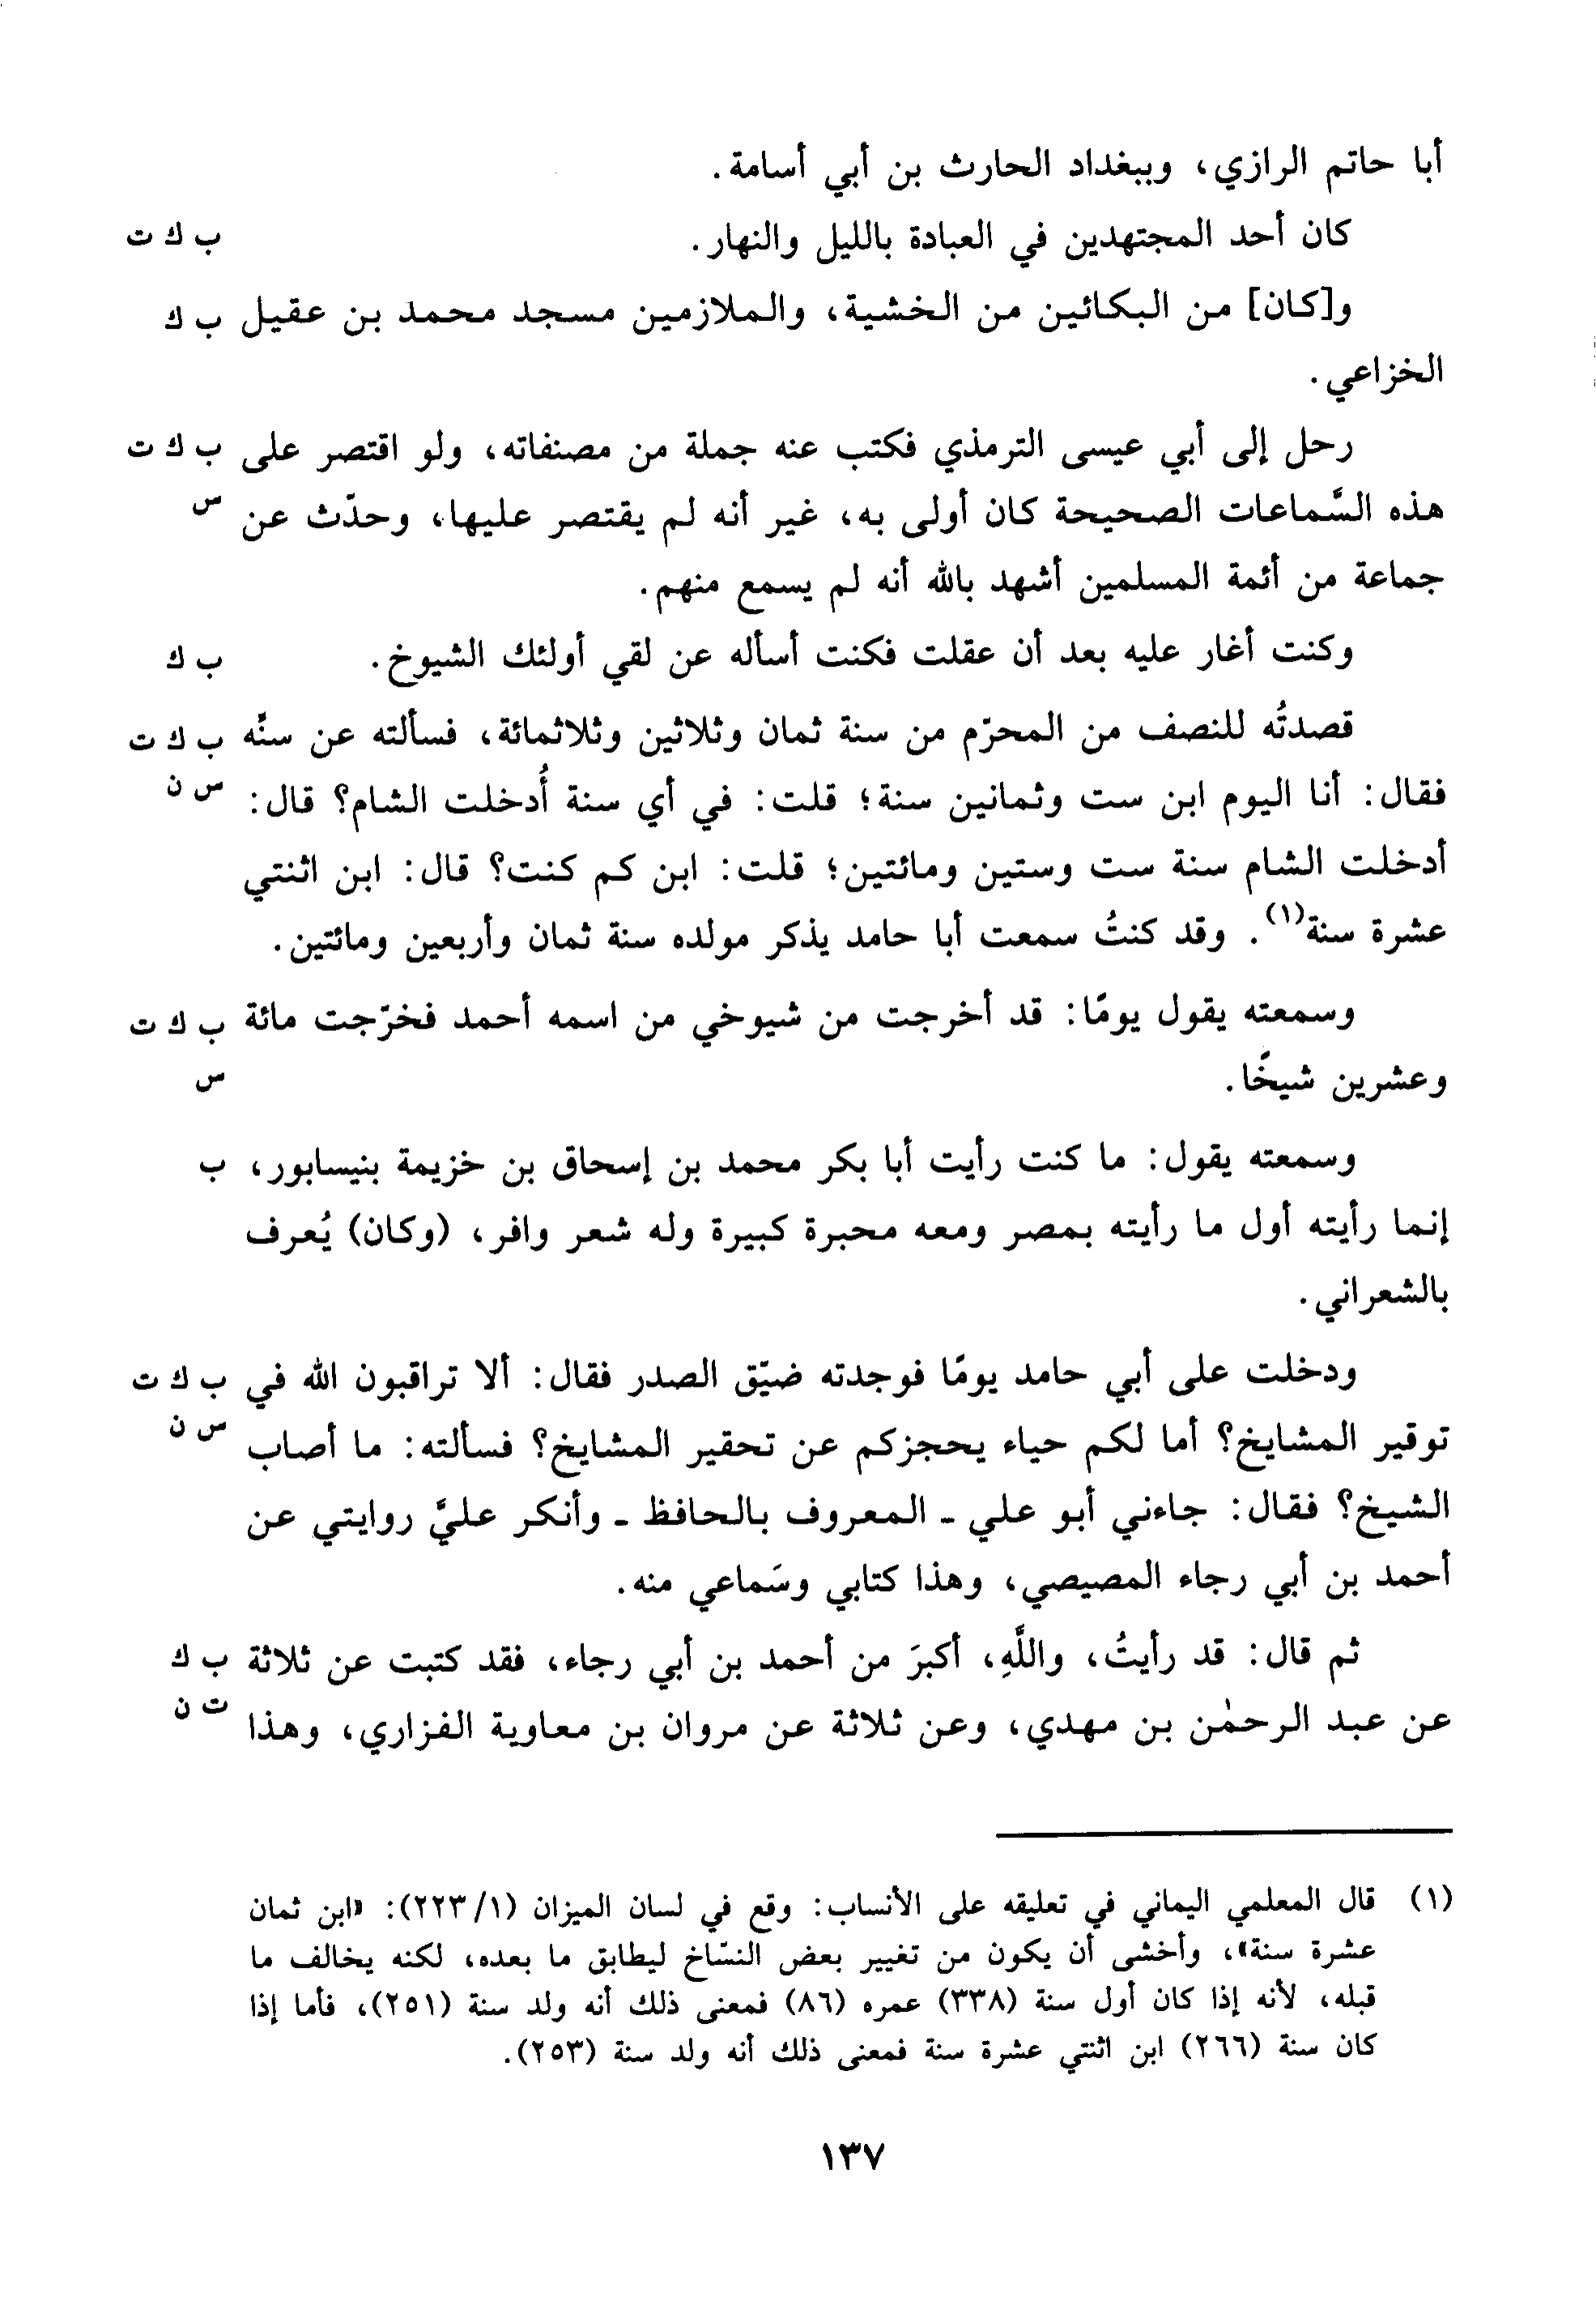 أبا حاتم الرازي، وببغداد الحارث بن أبي أسامة.
كان أحد المجتهدين في العبادة بالليل والنهار. ب ك ت
و[كان] من البكائين من الخشية، والملازمين مسجد محمد بن عقيل ب ك
الخزاعي.
رحل إلى أبي عيسى الترمذي فكتب عنه جملة من مصنفاته، ولو اقتصر على ب ك ت
هذه السَّماعات الصحيحة كان أولى به، غير أنه لم يقتصر عليها، وحدّث عن س
جماعة من أئمة المسلمين أشهد بالله أنه لم يسمع منهم.
وكنت أغار عليه بعد أن عقلت فكنت أسأله عن لقي أولئك الشيوخ. ب ك
قصدتُه للنصف من المحرّم من سنة ثمان وثلاثين وثلاثمائة، فسألته عن سنّه ب ك ت
فقال: أنا اليوم ابن ست وثمانين سنة؛ قلت: في أي سنة أُدخلت الشام؟ قال: س ن
أدخلت الشام سنة ست وستين ومائتين؛ قلت: ابن كم كنت؟ قال: ابن اثنتي
عشرة سنة(١). وقد كنتُ سمعت أبا حامد يذكر مولده سنة ثمان وأربعين ومائتين.
وسمعته يقول يومًا: قد أخرجت من شيوخي من اسمه أحمد فخرّجت مائة ب ك ت
وعشرين شيخًا. س
وسمعته يقول: ما كنت رأيت أبا بكر محمد بن إسحاق بن خزيمة بنيسابور، ب
إنما رأيته أول ما رأيته بمصر ومعه محبرة كبيرة وله شعر وافر، (وكان) يُعرف
بالشعراني.
ودخلت على أبي حامد يومًا فوجدته ضيّق الصدر فقال: ألا تراقبون الله في ب ك ت
توقير المشايخ؟ أما لكم حياء يحجزكم عن تحقير المشايخ؟ فسألته: ما أصاب س ن
الشيخ؟ فقال: جاءني أبو علي - المعروف بالحافظ - وأنكر عليَّ روايتي عن
أحمد بن أبي رجاء المصيصي، وهذا كتابي وسَماعي منه.
ثم قال: قد رأيتُ، واللَّهِ، أكبرَ من أحمد بن أبي رجاء، فقد كتبت عن ثلاثة ب ك
عن عبد الرحمٰن بن مهدي، وعن ثلاثة عن مروان بن معاوية الفزاري، وهذا ت ن
(١) قال المعلمي اليماني في تعليقه على الأنساب: وقع في لسان الميزان (١/٢٢٣): «ابن ثمان
عشرة سنة»، وأخشى أن يكون من تغيير بعض النسّاخ ليطابق ما بعده، لكنه يخالف ما
قبله، لأنه إذا كان أول سنة (٣٣٨) عمره (٨٦) فمعنى ذلك أنه ولد سنة (٢٥١)، فأما إذا
كان سنة (٢٦٦) ابن اثنتي عشرة سنة فمعنى ذلك أنه ولد سنة (٢٥٣).
١٣٧